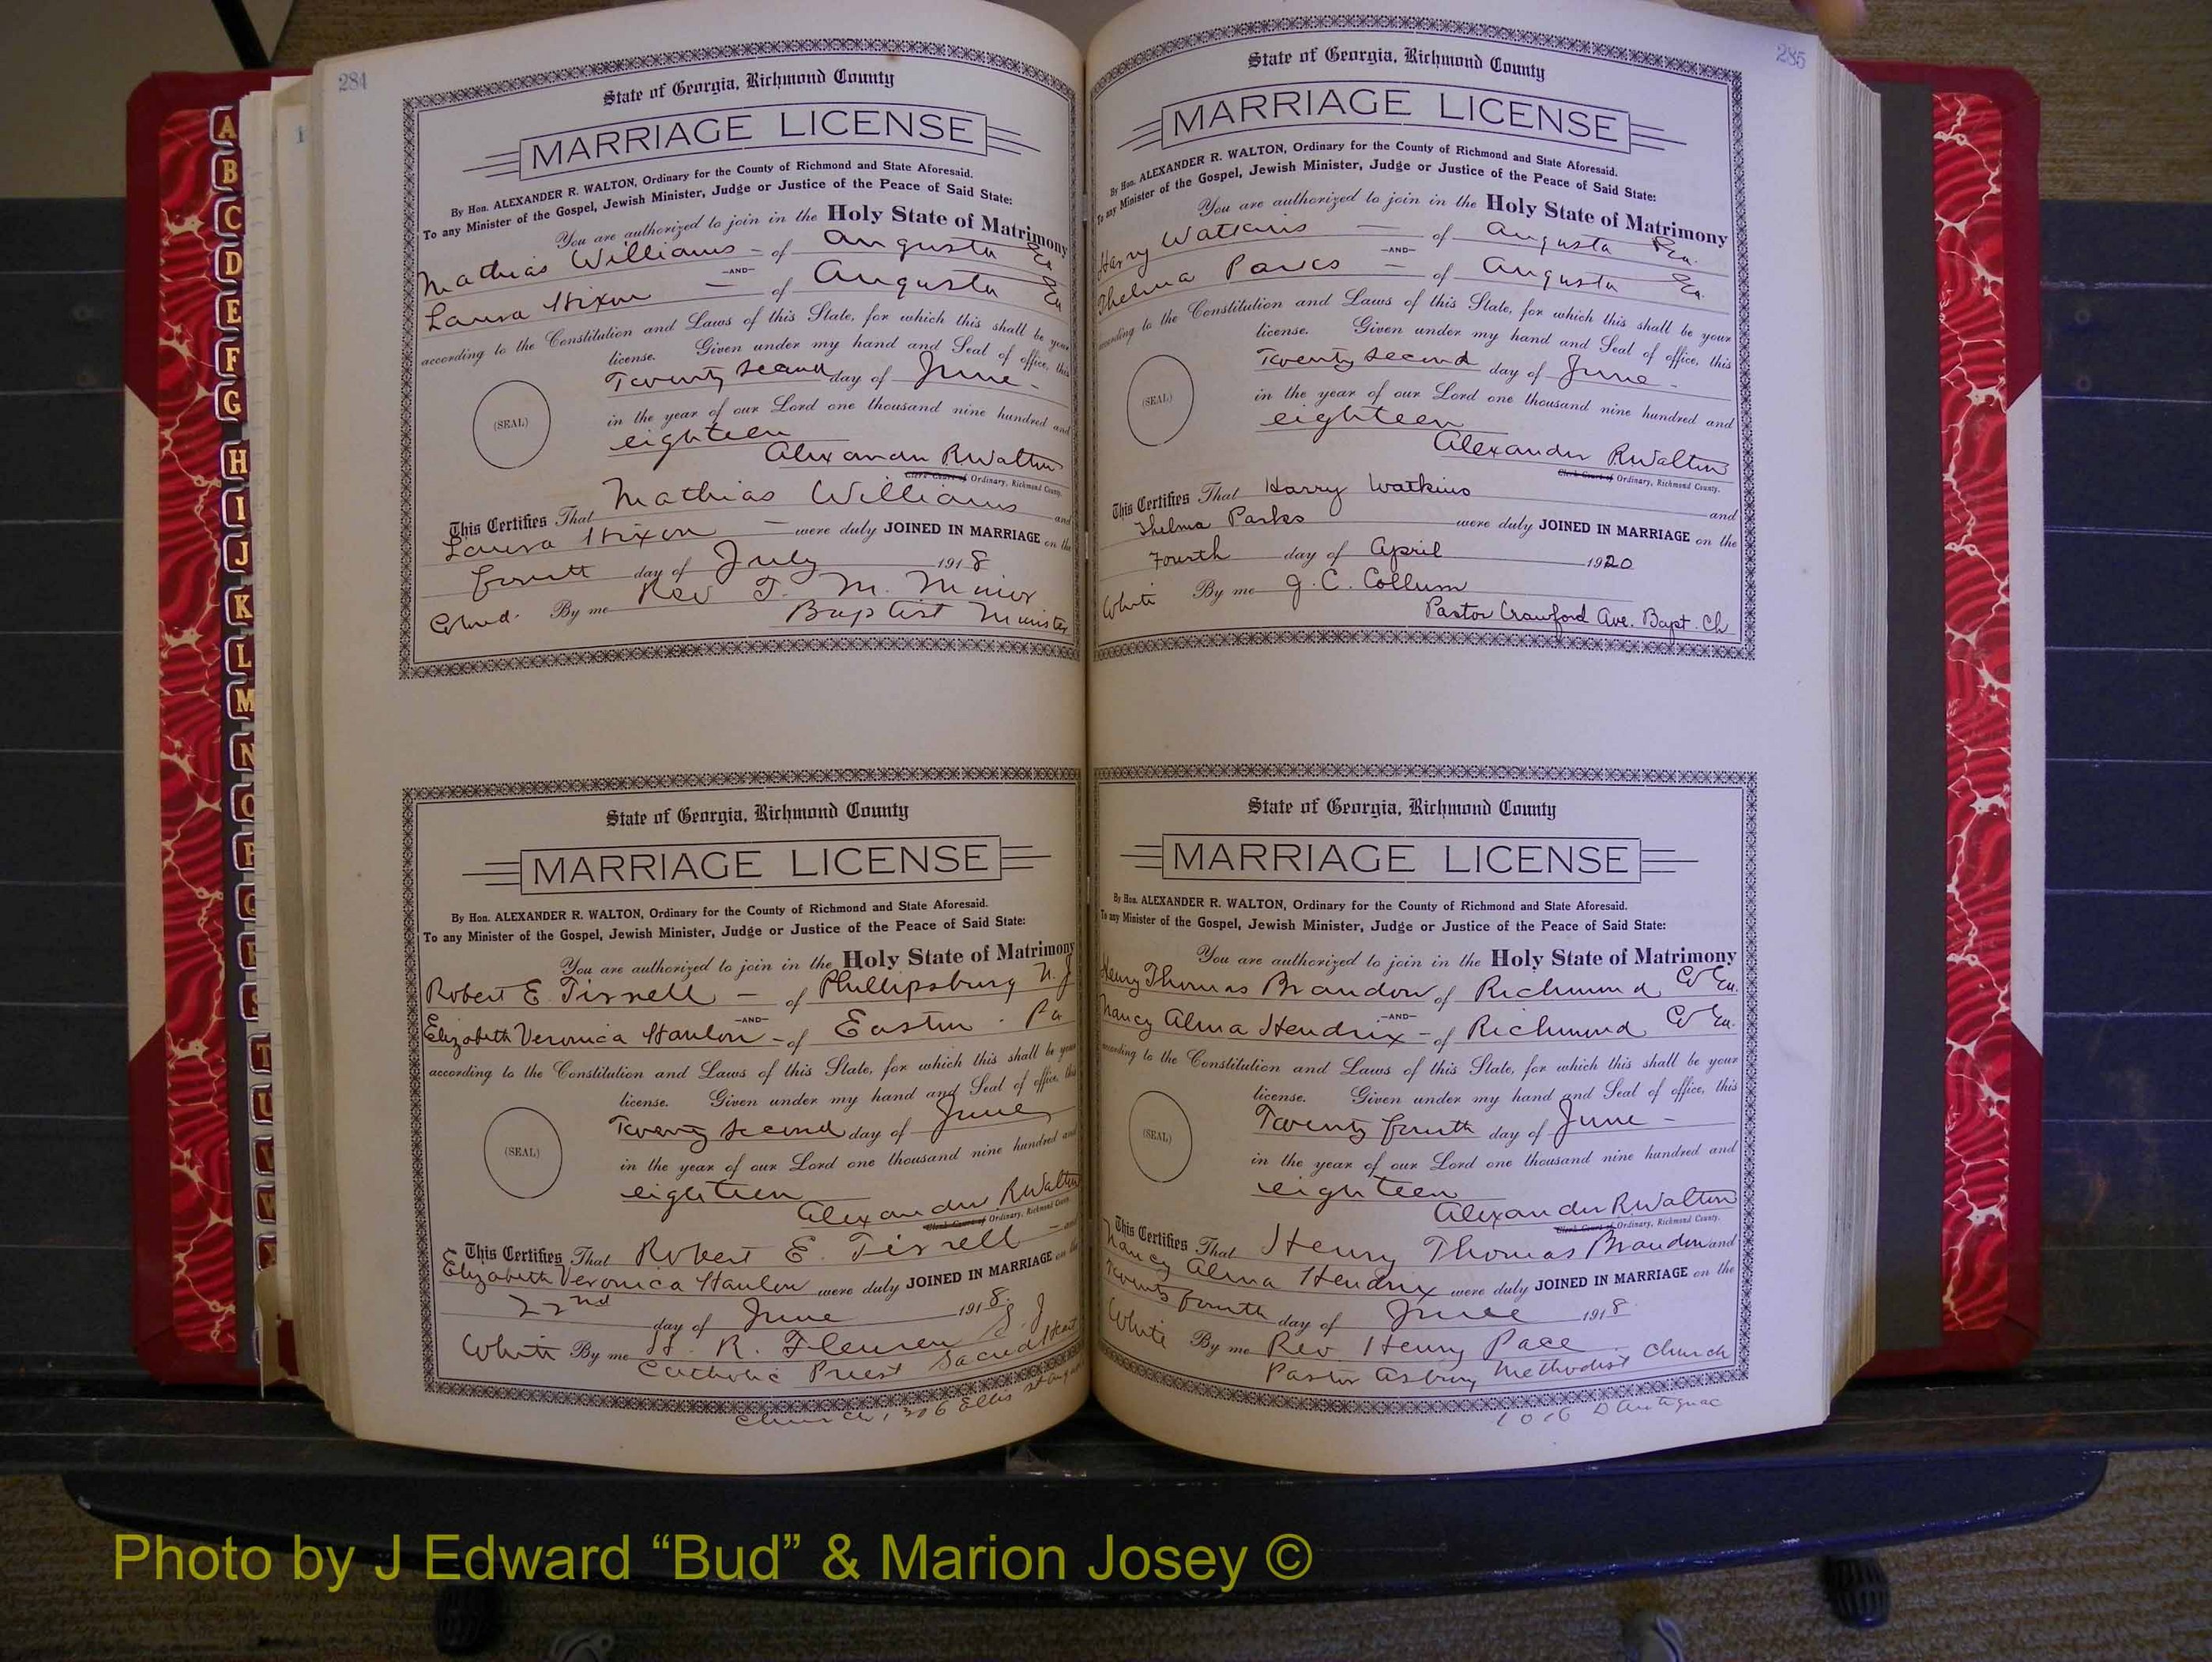 284
State of Georgia, Richmond County
MARRIAGE LICENSE
By Hon. ALEXANDER R. WALTON, Ordinary for the County of Richmond and State Aforesaid.
To any Minister of the Gospel, Jewish Minister, Judge or Justice of the Peace of Said State:
You are authorized to join in the Holy State of Matrimony
Mathias Williams - of Augusta Ga
—AND—
Laura Hixon - of Augusta Ga
according to the Constitution and Laws of this State, for which this shall be your
license. Given under my hand and Seal of office, this
Twenty Second day of June -
(SEAL)
in the year of our Lord one thousand nine hundred and
eighteen
Alexander R Walton
Clerk Court of Ordinary, Richmond County.
This Certifies That Mathias Williams and
Laura Hixon - were duly JOINED IN MARRIAGE on the
fourth day of July 1918
Colored. By me Rev T. M. Minor
Baptist Minister
State of Georgia, Richmond County
MARRIAGE LICENSE
By Hon. ALEXANDER R. WALTON, Ordinary for the County of Richmond and State Aforesaid.
To any Minister of the Gospel, Jewish Minister, Judge or Justice of the Peace of Said State:
You are authorized to join in the Holy State of Matrimony
Robert E. Tirrell - of Phillipsburg N. J
—AND—
Elizabeth Veronica Hanlon - of Easton. Pa
according to the Constitution and Laws of this State, for which this shall be your
license. Given under my hand and Seal of office, this
Twenty Second day of June
(SEAL)
in the year of our Lord one thousand nine hundred and
eighteen
Alexander R Walton
Clerk Court of Ordinary, Richmond County.
This Certifies That Robert E. Tirrell - and
Elizabeth Veronica Hanlon were duly JOINED IN MARRIAGE on the
22nd day of June 1918.
White By me H. R. Fleuren S. J
Catholic Priest Sacred Heart
Church, 1306 Ellis st
285
State of Georgia, Richmond County
MARRIAGE LICENSE
By Hon. ALEXANDER R. WALTON, Ordinary for the County of Richmond and State Aforesaid.
To any Minister of the Gospel, Jewish Minister, Judge or Justice of the Peace of Said State:
You are authorized to join in the Holy State of Matrimony
Harry Watkins - of Augusta Ga.
—AND—
Thelma Parks - of Augusta Ga.
according to the Constitution and Laws of this State, for which this shall be your
license. Given under my hand and Seal of office, this
Twenty Second day of June -
(SEAL)
in the year of our Lord one thousand nine hundred and
eighteen
Alexander R Walton
Clerk Court of Ordinary, Richmond County.
This Certifies That Harry Watkins and
Thelma Parks were duly JOINED IN MARRIAGE on the
Fourth day of April 1920
White By me J. C. Collum
Pastor Crawford Ave. Bapt. Ch
State of Georgia, Richmond County
MARRIAGE LICENSE
By Hon. ALEXANDER R. WALTON, Ordinary for the County of Richmond and State Aforesaid.
To any Minister of the Gospel, Jewish Minister, Judge or Justice of the Peace of Said State:
You are authorized to join in the Holy State of Matrimony
Henry Thomas Brandon of Richmond Co Ga.
—AND—
Nancy Alma Hendrix - of Richmond Co Ga.
according to the Constitution and Laws of this State, for which this shall be your
license. Given under my hand and Seal of office, this
Twenty fourth day of June -
(SEAL)
in the year of our Lord one thousand nine hundred and
eighteen
Alexander R Walton
Clerk Court of Ordinary, Richmond County.
This Certifies That Henry Thomas Brandon and
Nancy Alma Hendrix were duly JOINED IN MARRIAGE on the
Twenty fourth day of June 1918
White By me Rev Henry Pace
Pastor Asbury Methodist Church
1016 D'Antignac
A
B
C
D
E
F
G
H
I
J
K
L
M
N
O
P
Q
R
S
T
U
V
W
Photo by J Edward “Bud” & Marion Josey ©